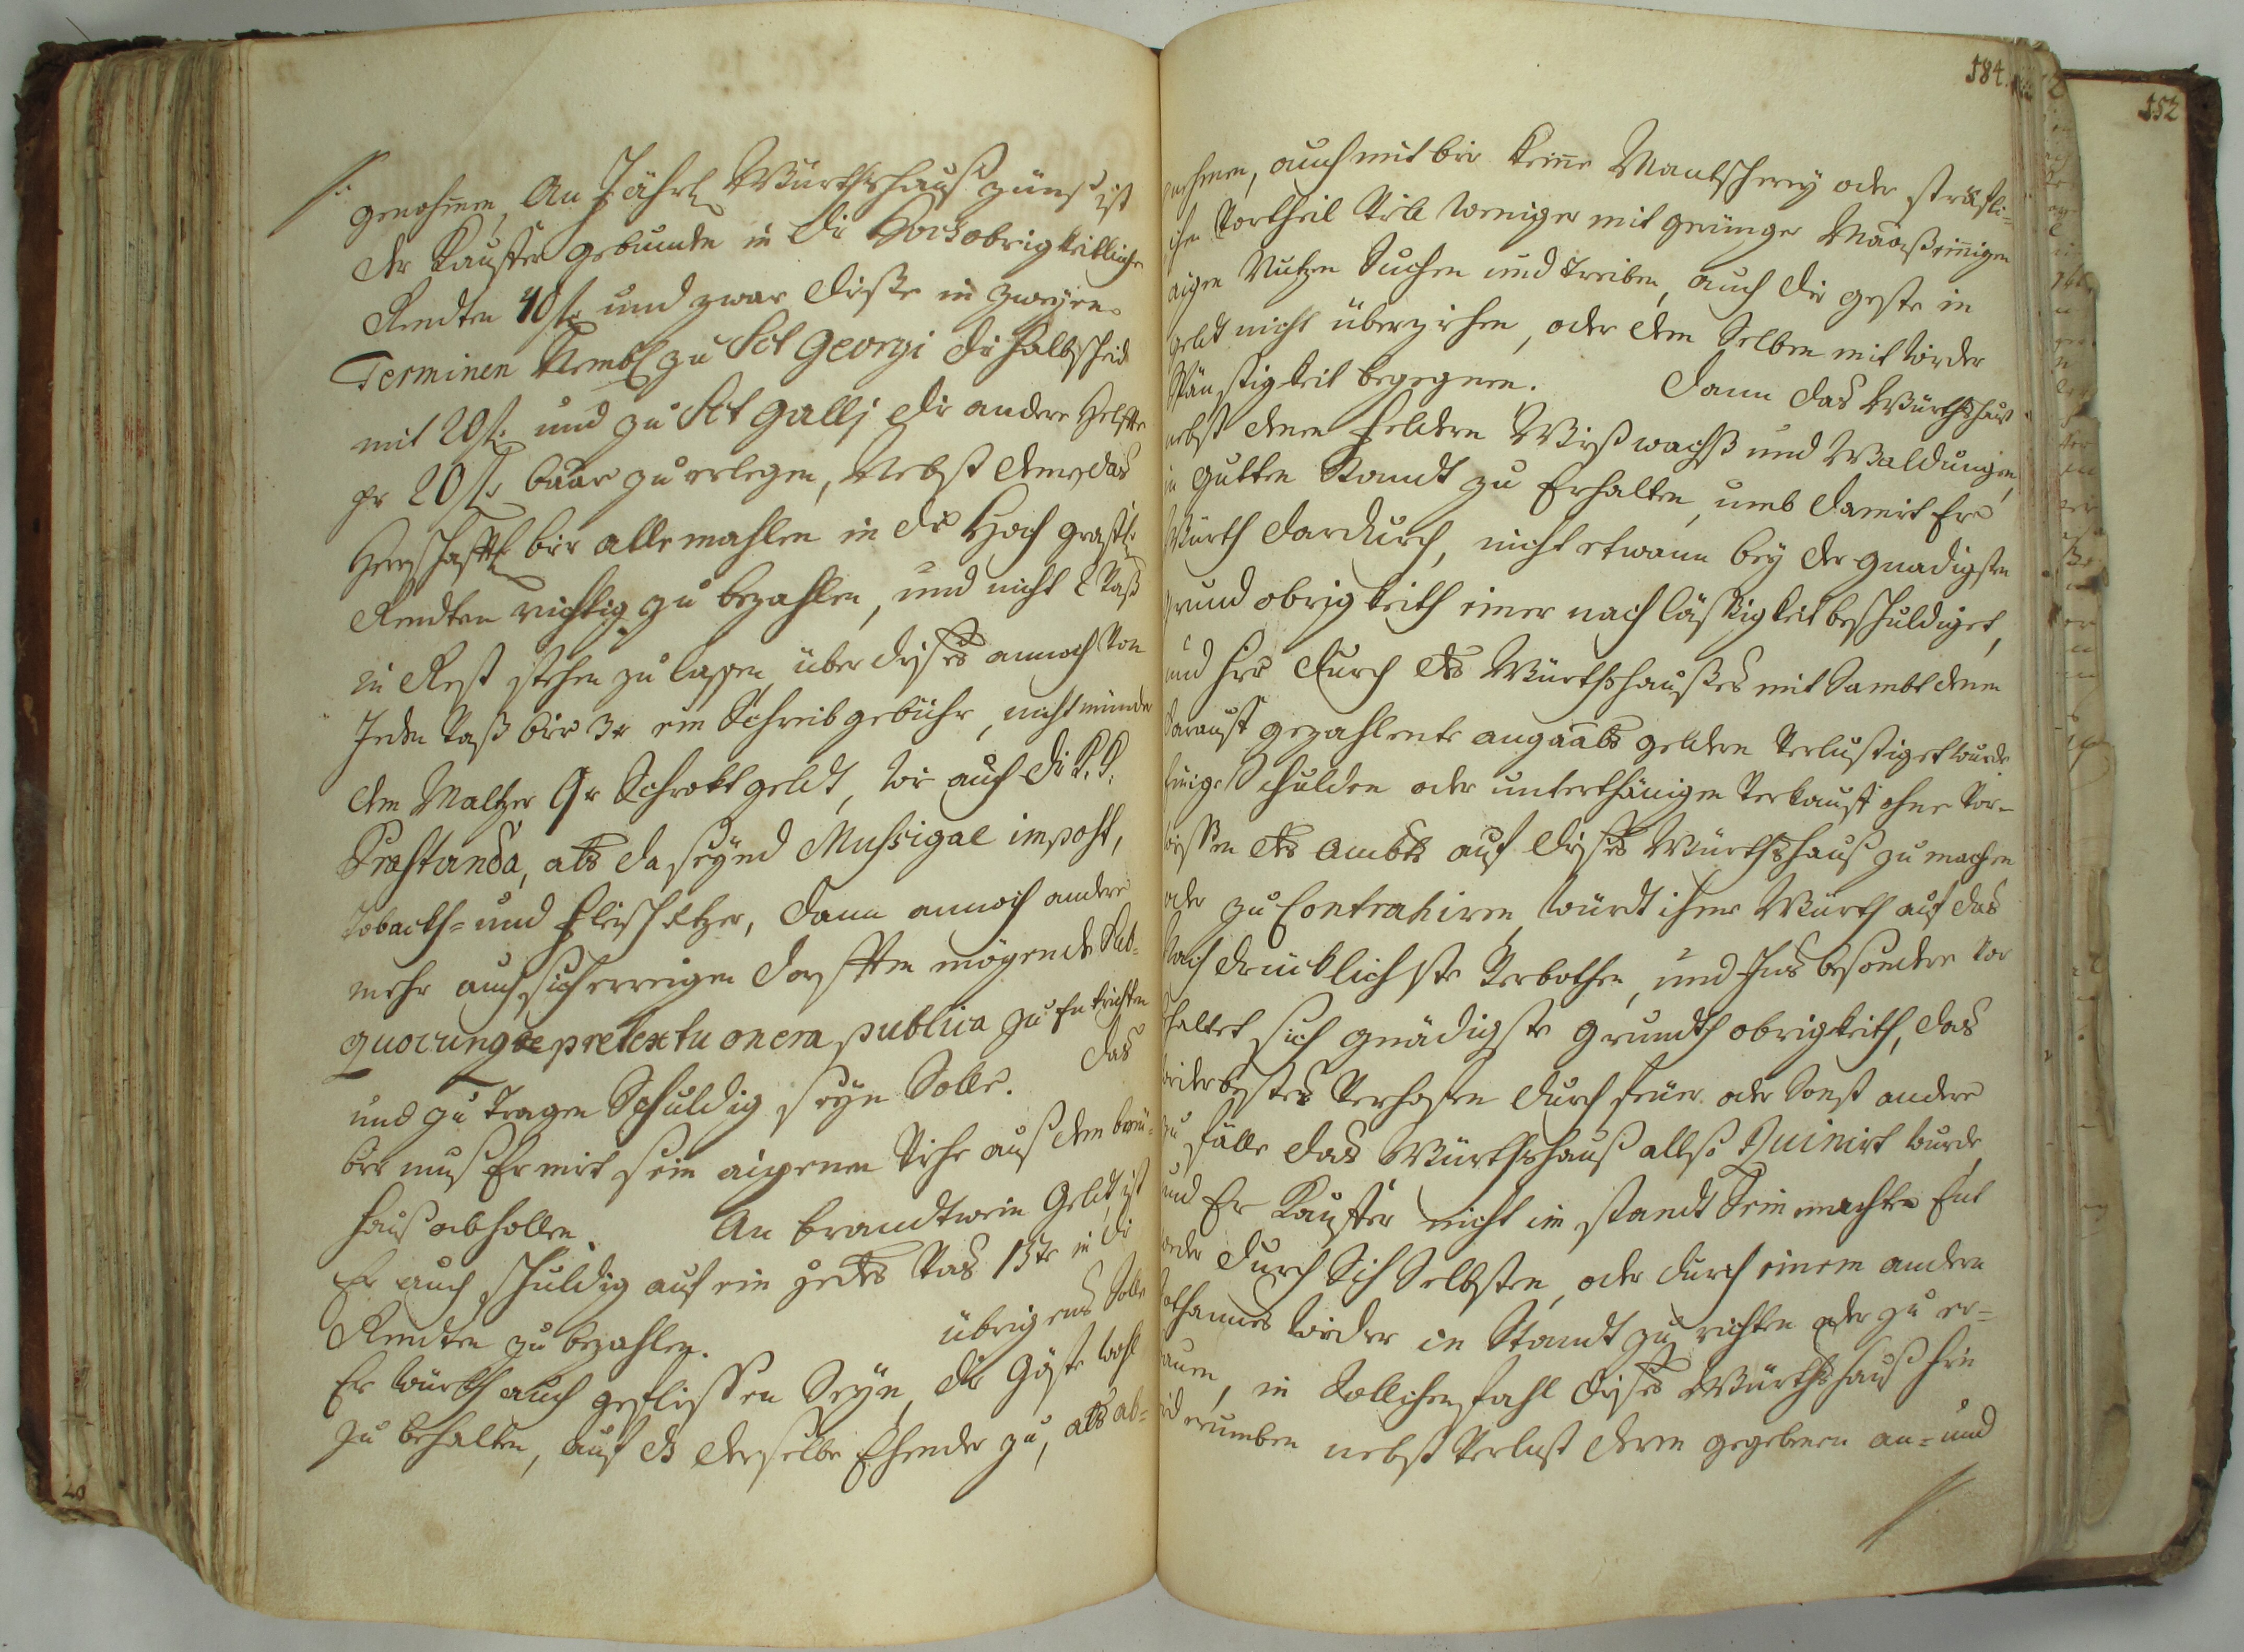 genohmen, An Jährl Würthshauß zünß ist
der Kauffer gebunden in die Hochobrigkeitliche
Rendten 40 f. und zwar diese in zweyen
Terminen Nembl zu Sct Georgi die halbscheid
mit 20 f. und zu Sct Gallj die andere Helffte
pr 20 f. baar zu erlegen, Nebst deme, das
Herrschafftl bier allemahlen in die Hoch gräfl.
Rendten richtig zu bezahlen, und nicht 1 Vaß
in Rest stehen zu lassen, über dieses annoch von
Jeden Vaß bier 3 x ein Schreibgebühr, nicht münder
dem Maltzer 9 x Schrottgeldt, wie auch die k. k.
Præstanda, als da seynd Mussigal impost,
tobackh- und fleischkr̃tzer, dann annoch andere
mehr auch sich erreigen dorfften mögende Sub-
quocunque pretextu onera publica zu Entrichten
und zu tragen Schuldig seyn Solle. das
bier muß Er mit sein aigenen Viehe auß dem breü-
hauß abhollen. An brandtwein Geldt, ist
Er auch schuldig auf ein jedes Vas 15 x in die
Rendten zu bezahlen. übrigens Solle
Er würth auch geflissen Seyn, die Gäste wohl
zu behalten, auf das dieselbe Ehender zu, als ab-
184.
152
nehmen, auch mit bier keine Mantscherey oder sträfli-
chen Vortheil Viell weniger mit geringer Maaß einigen
aigen Nutzen Suchen und treiben, auch die geste in
geldt nicht überziehen, oder dem Selben mit wider
Spänstigkeit begegnen. dann das Würthshauß
nebst denen feldern Wißwachß und Waldungen,
in gutten Standt zu Erhalten, umb damit Er
Würth dardurch, nicht etwann bey der gnadigsten
grund obrigkeith einer nachläßigkeit beschuldiget,
und hier durch des Würthshaußes mit Sambt denen
darauf gezahlente angaabs geldern Verlustiget wurde
Einige Schulden oder unterthänigen Verkauf ohne Vor-
wissen des Ambts auf dieses Würthshauß zu machen
oder zu Contrahiren, würdt ihme Würth auf das
Nach drücklichste Verbothen, und Insbesondere vor
haltet sich gnädigste grundt obrigkeith, das
wider bestes Verhoffen durch feüer oder Sonst andere
zu fälle das Würthshauß allso Ruinirt wurde,
und Er Kauffer nicht im standt Sein machte Ent
weder durch Sich Selbsten, oder durch einem andern
sothannes wider in Standt zu richten oder zu er-
bauen, in Sollchen fahl dieses Würthshauß hin
widerumben nebst Verlust deren gegebenen an- und